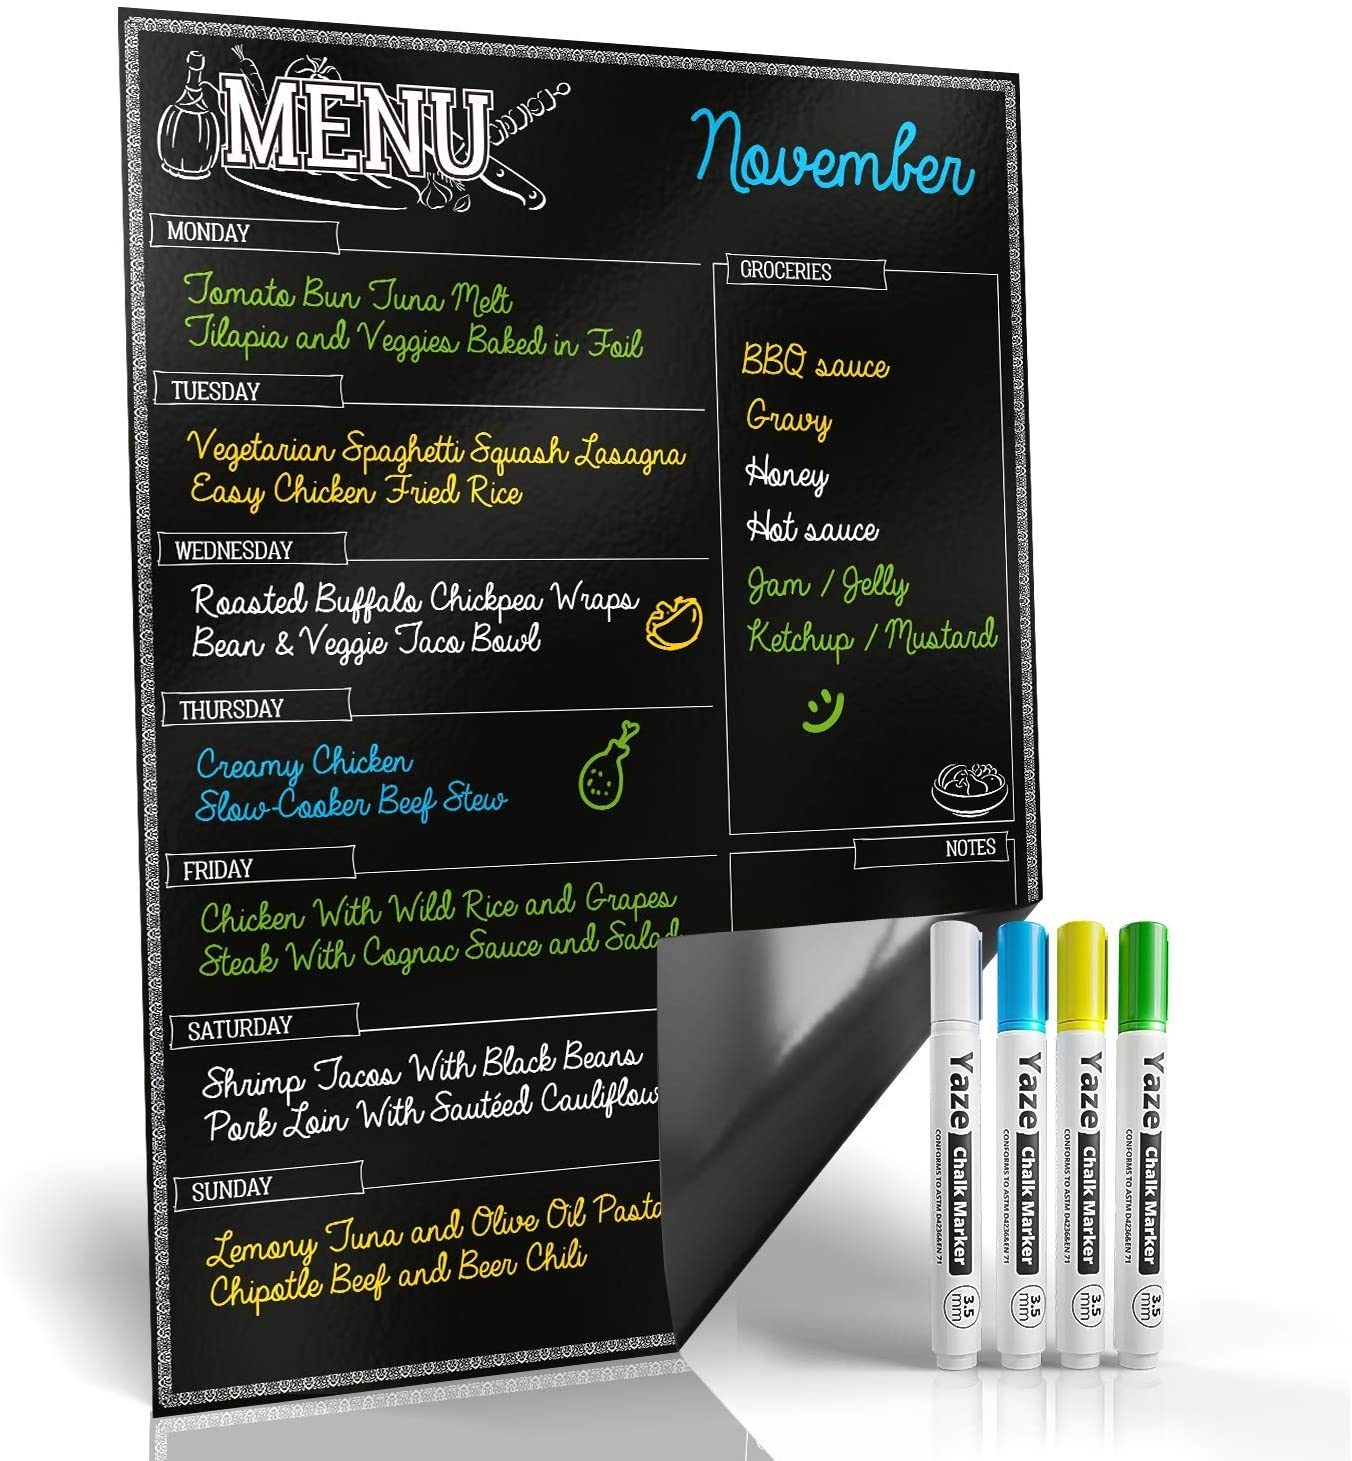 MENU
November
MONDAY
Tomato Bun Tuna Melt
Tilapia and Veggies Baked in Foil
TUESDAY
Vegetarian Spaghetti Squash Lasagna
Easy Chicken Fried Rice
WEDNESDAY
Roasted Buffalo Chickpea Wraps
Bean & Veggie Taco Bowl
THURSDAY
Creamy Chicken
Slow-Cooker Beef Stew
FRIDAY
Chicken With Wild Rice and Grapes
Steak With Cognac Sauce and Salad
SATURDAY
Shrimp Tacos With Black Beans
Pork Loin With Sautéed Cauliflow
SUNDAY
Lemony Tuna and Olive Oil Pasta
Chipotle Beef and Beer Chili
GROCERIES
BBQ sauce
Gravy
Honey
Hot sauce
Jam / Jelly
Ketchup / Mustard
NOTES
Yaze Chalk Marker
CONFORMS TO ASTM D4236&EN 71
3.5 mm
Yaze Chalk Marker
CONFORMS TO ASTM D4236&EN 71
3.5 mm
Yaze Chalk Marker
CONFORMS TO ASTM D4236&EN 71
3.5 mm
Yaze Chalk Marker
CONFORMS TO ASTM D4236&EN 71
3.5 mm